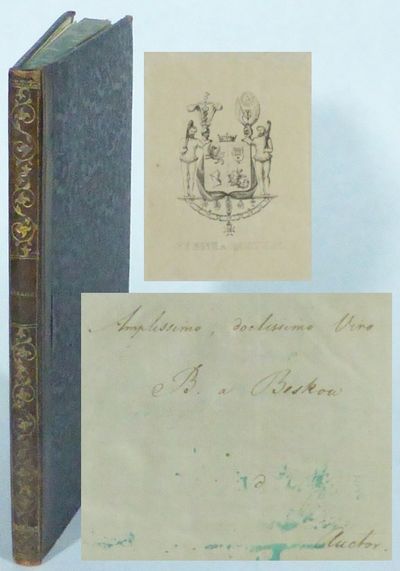 Amplissimo, doctissimo Viro
B. a Beskow
d
Auctor.